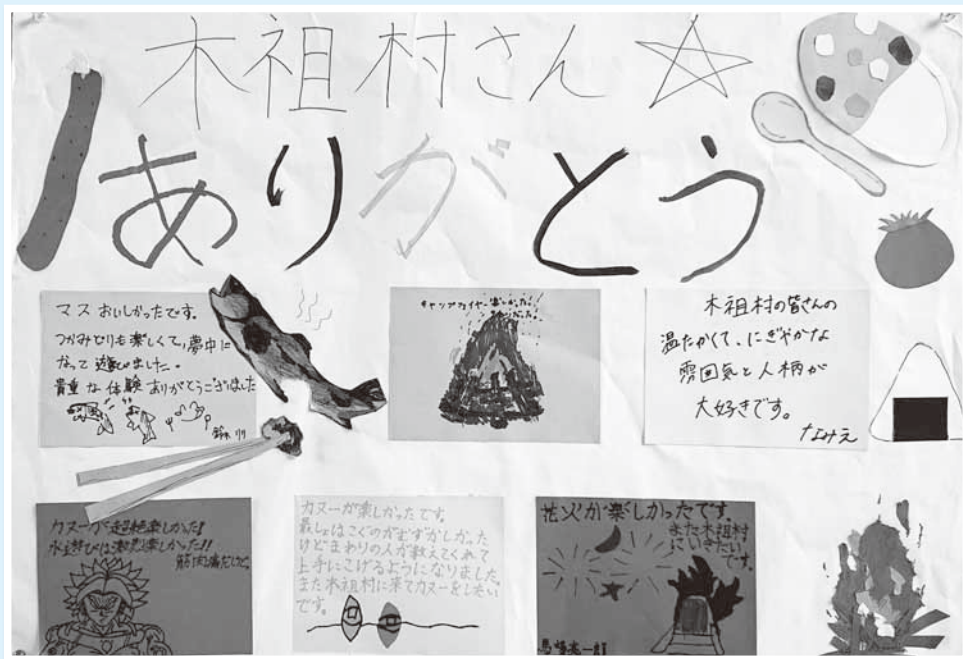 木祖村さん
ありがとう
マスおいしかったです。
つかみどりも楽しくて,夢中に
なって遊びました。
貴重な体験ありがとうございました
キャンプファイヤー楽しかったよ!
木祖村の皆さんの
温たかくて、にぎやかな
雰囲気と人柄が
大好きです。
なみえ
カヌーが超絶楽しかった!
水遊びは激烈楽しかった!!
筋肉痛だけど。
カヌーが楽しかったです。
最しょはこぐのがむずかしかった
けどまわりの人が教えてくれて
上手にこげるようになりました。
また木祖村に来てカヌーをしたい
です。
花火が楽しかったです。
また木祖村
にいきたい
です。